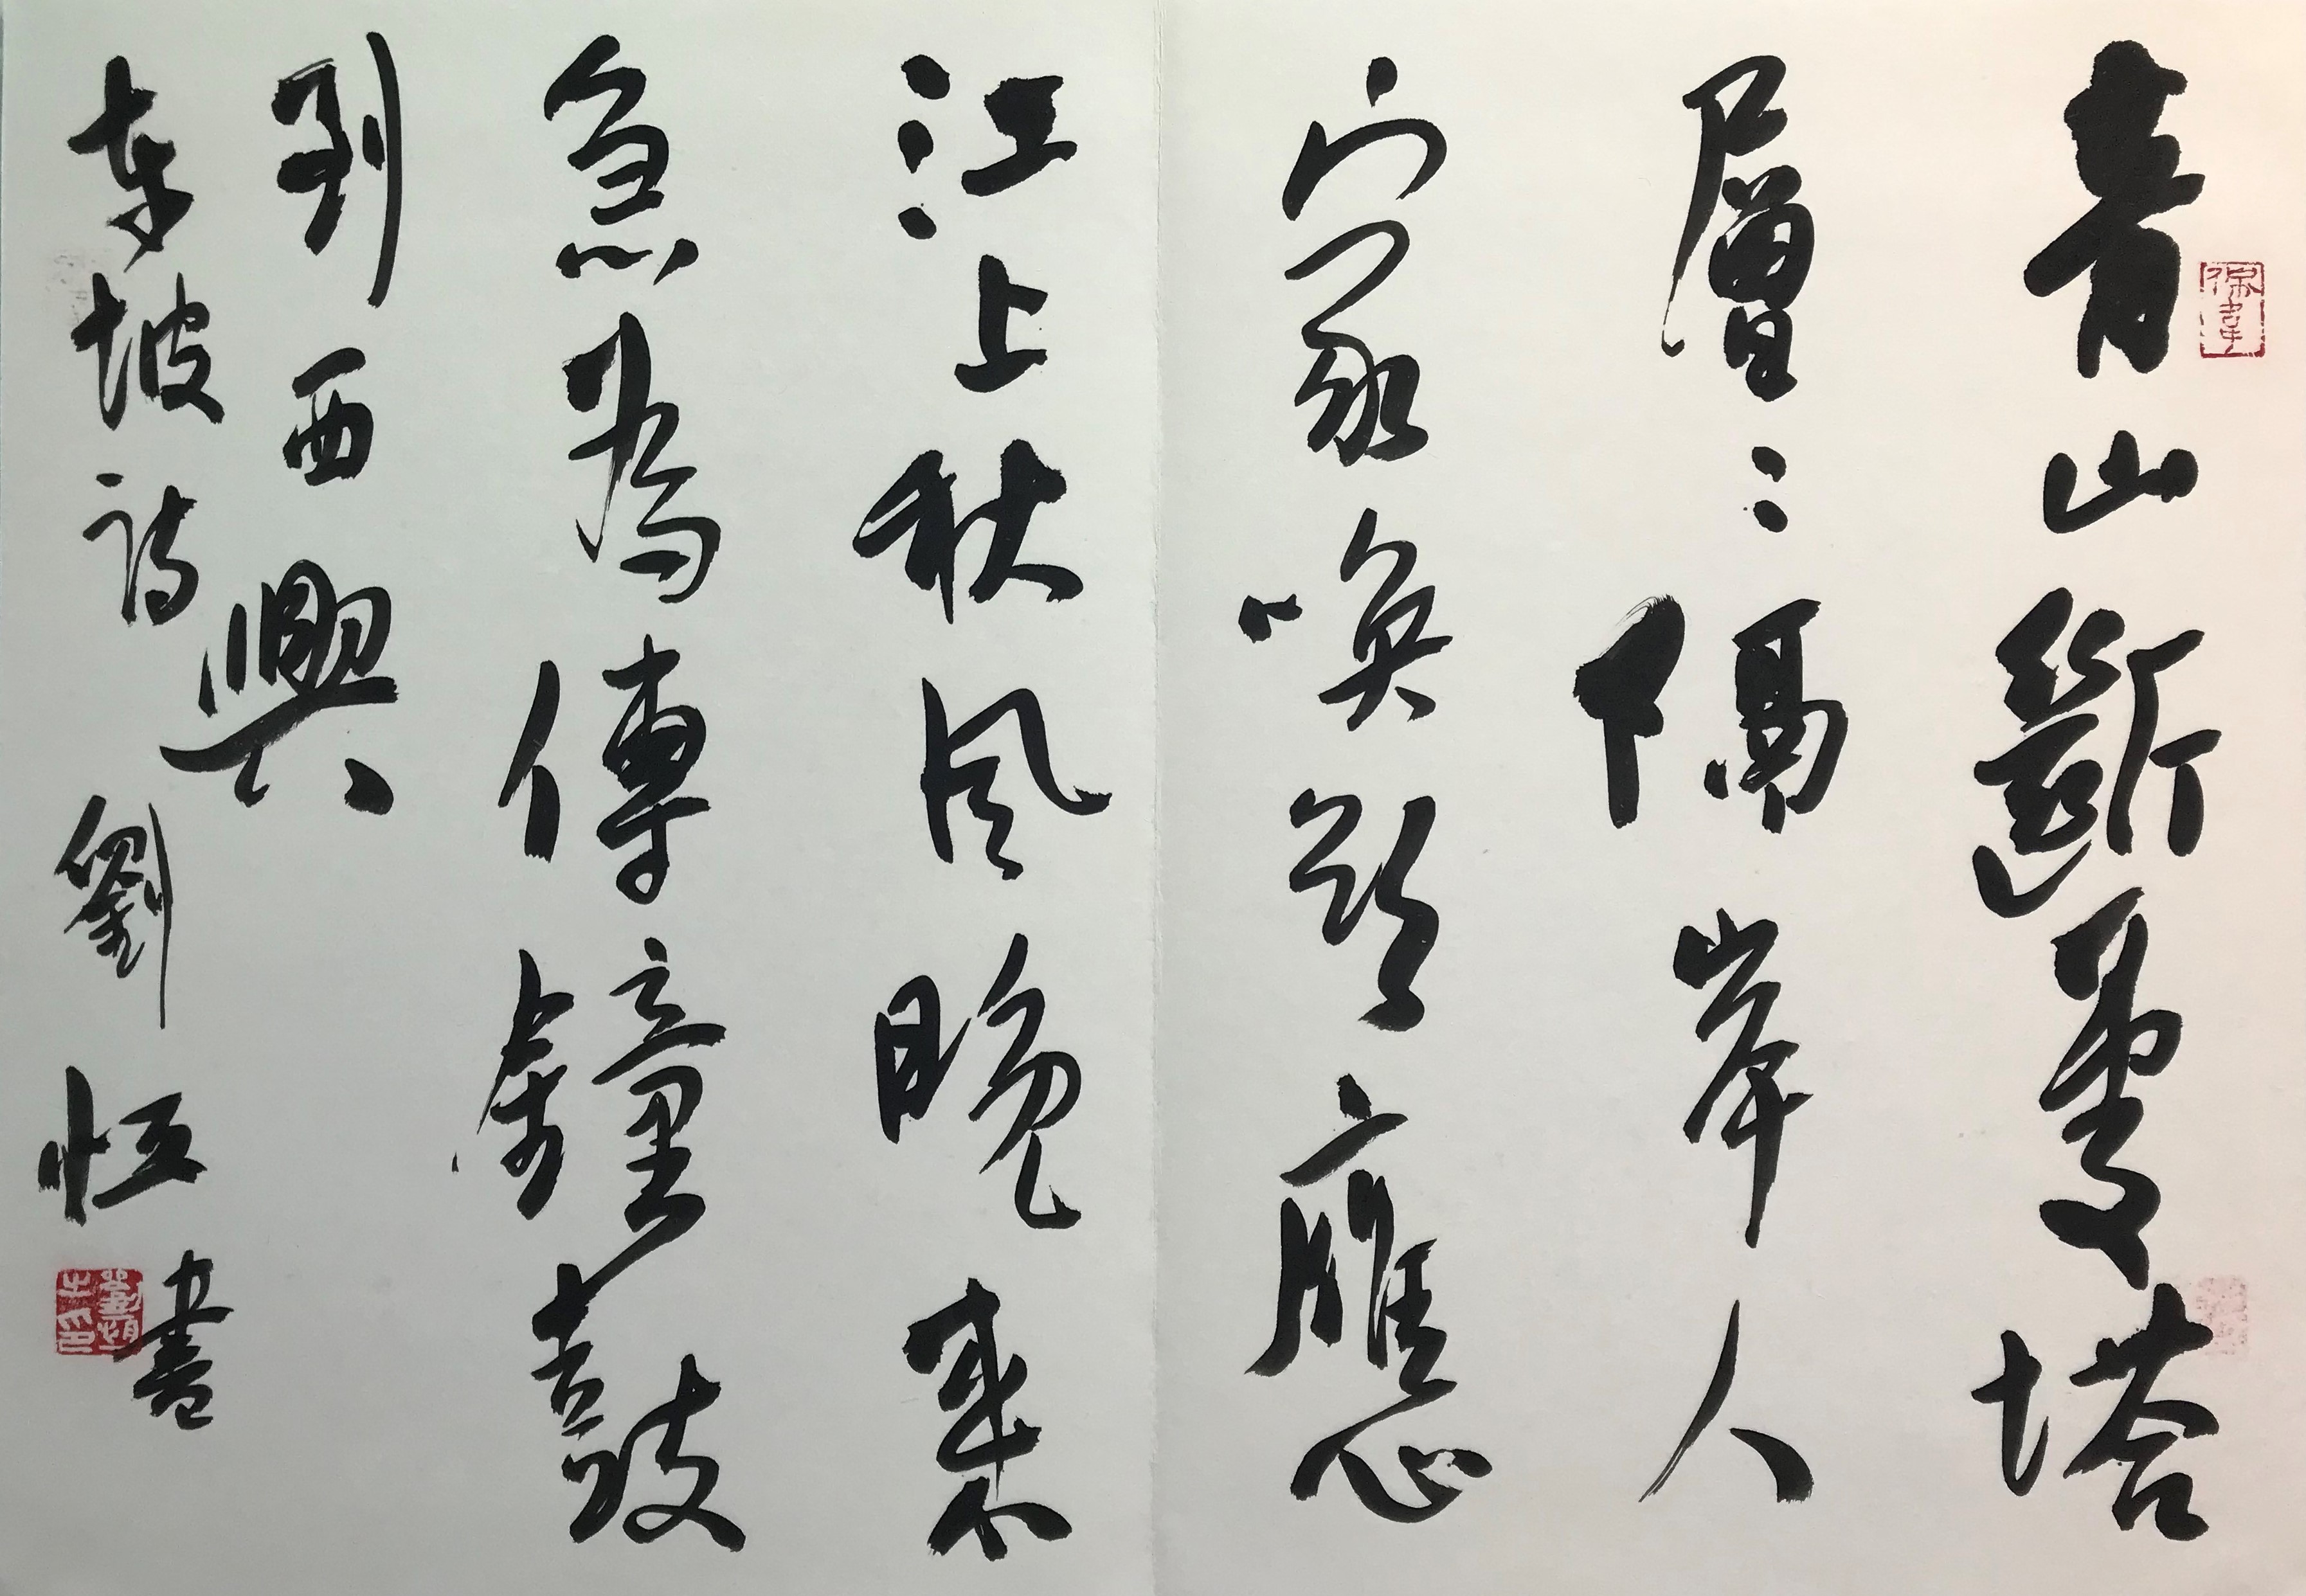 青山斷處塔
層〻隔岸人
家喚欲應
江上秋風晚來
急為傳鐘鼓
到西興
東坡詩 劉恒書
劉恒之印